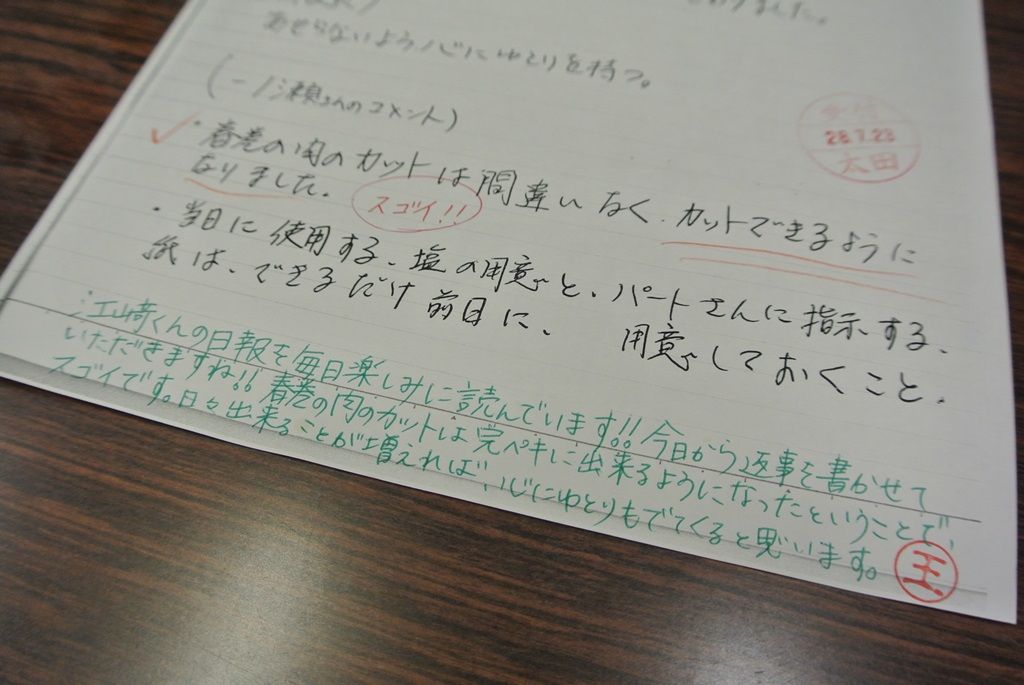 ました。
あせらないよう心にゆとりを持つ。
(一ノ瀬さんのコメント)
28.7.23
太田
・春巻の肉のカットは間違いなく、カットできるように
なりました。
スゴイ!!
・当日に使用する、塩の用意と、パートさんに指示する、
紙は、できるだけ前日に、用意しておくこと。
江崎くんの日報を毎日楽しみに読んでいます!!今日から返事を書かせて
いただきますね!!春巻の肉のカットは完ペキに出来るようになったということで、
スゴイです。日々出来ることが増えれば、心にゆとりもでてくると思います。
玉